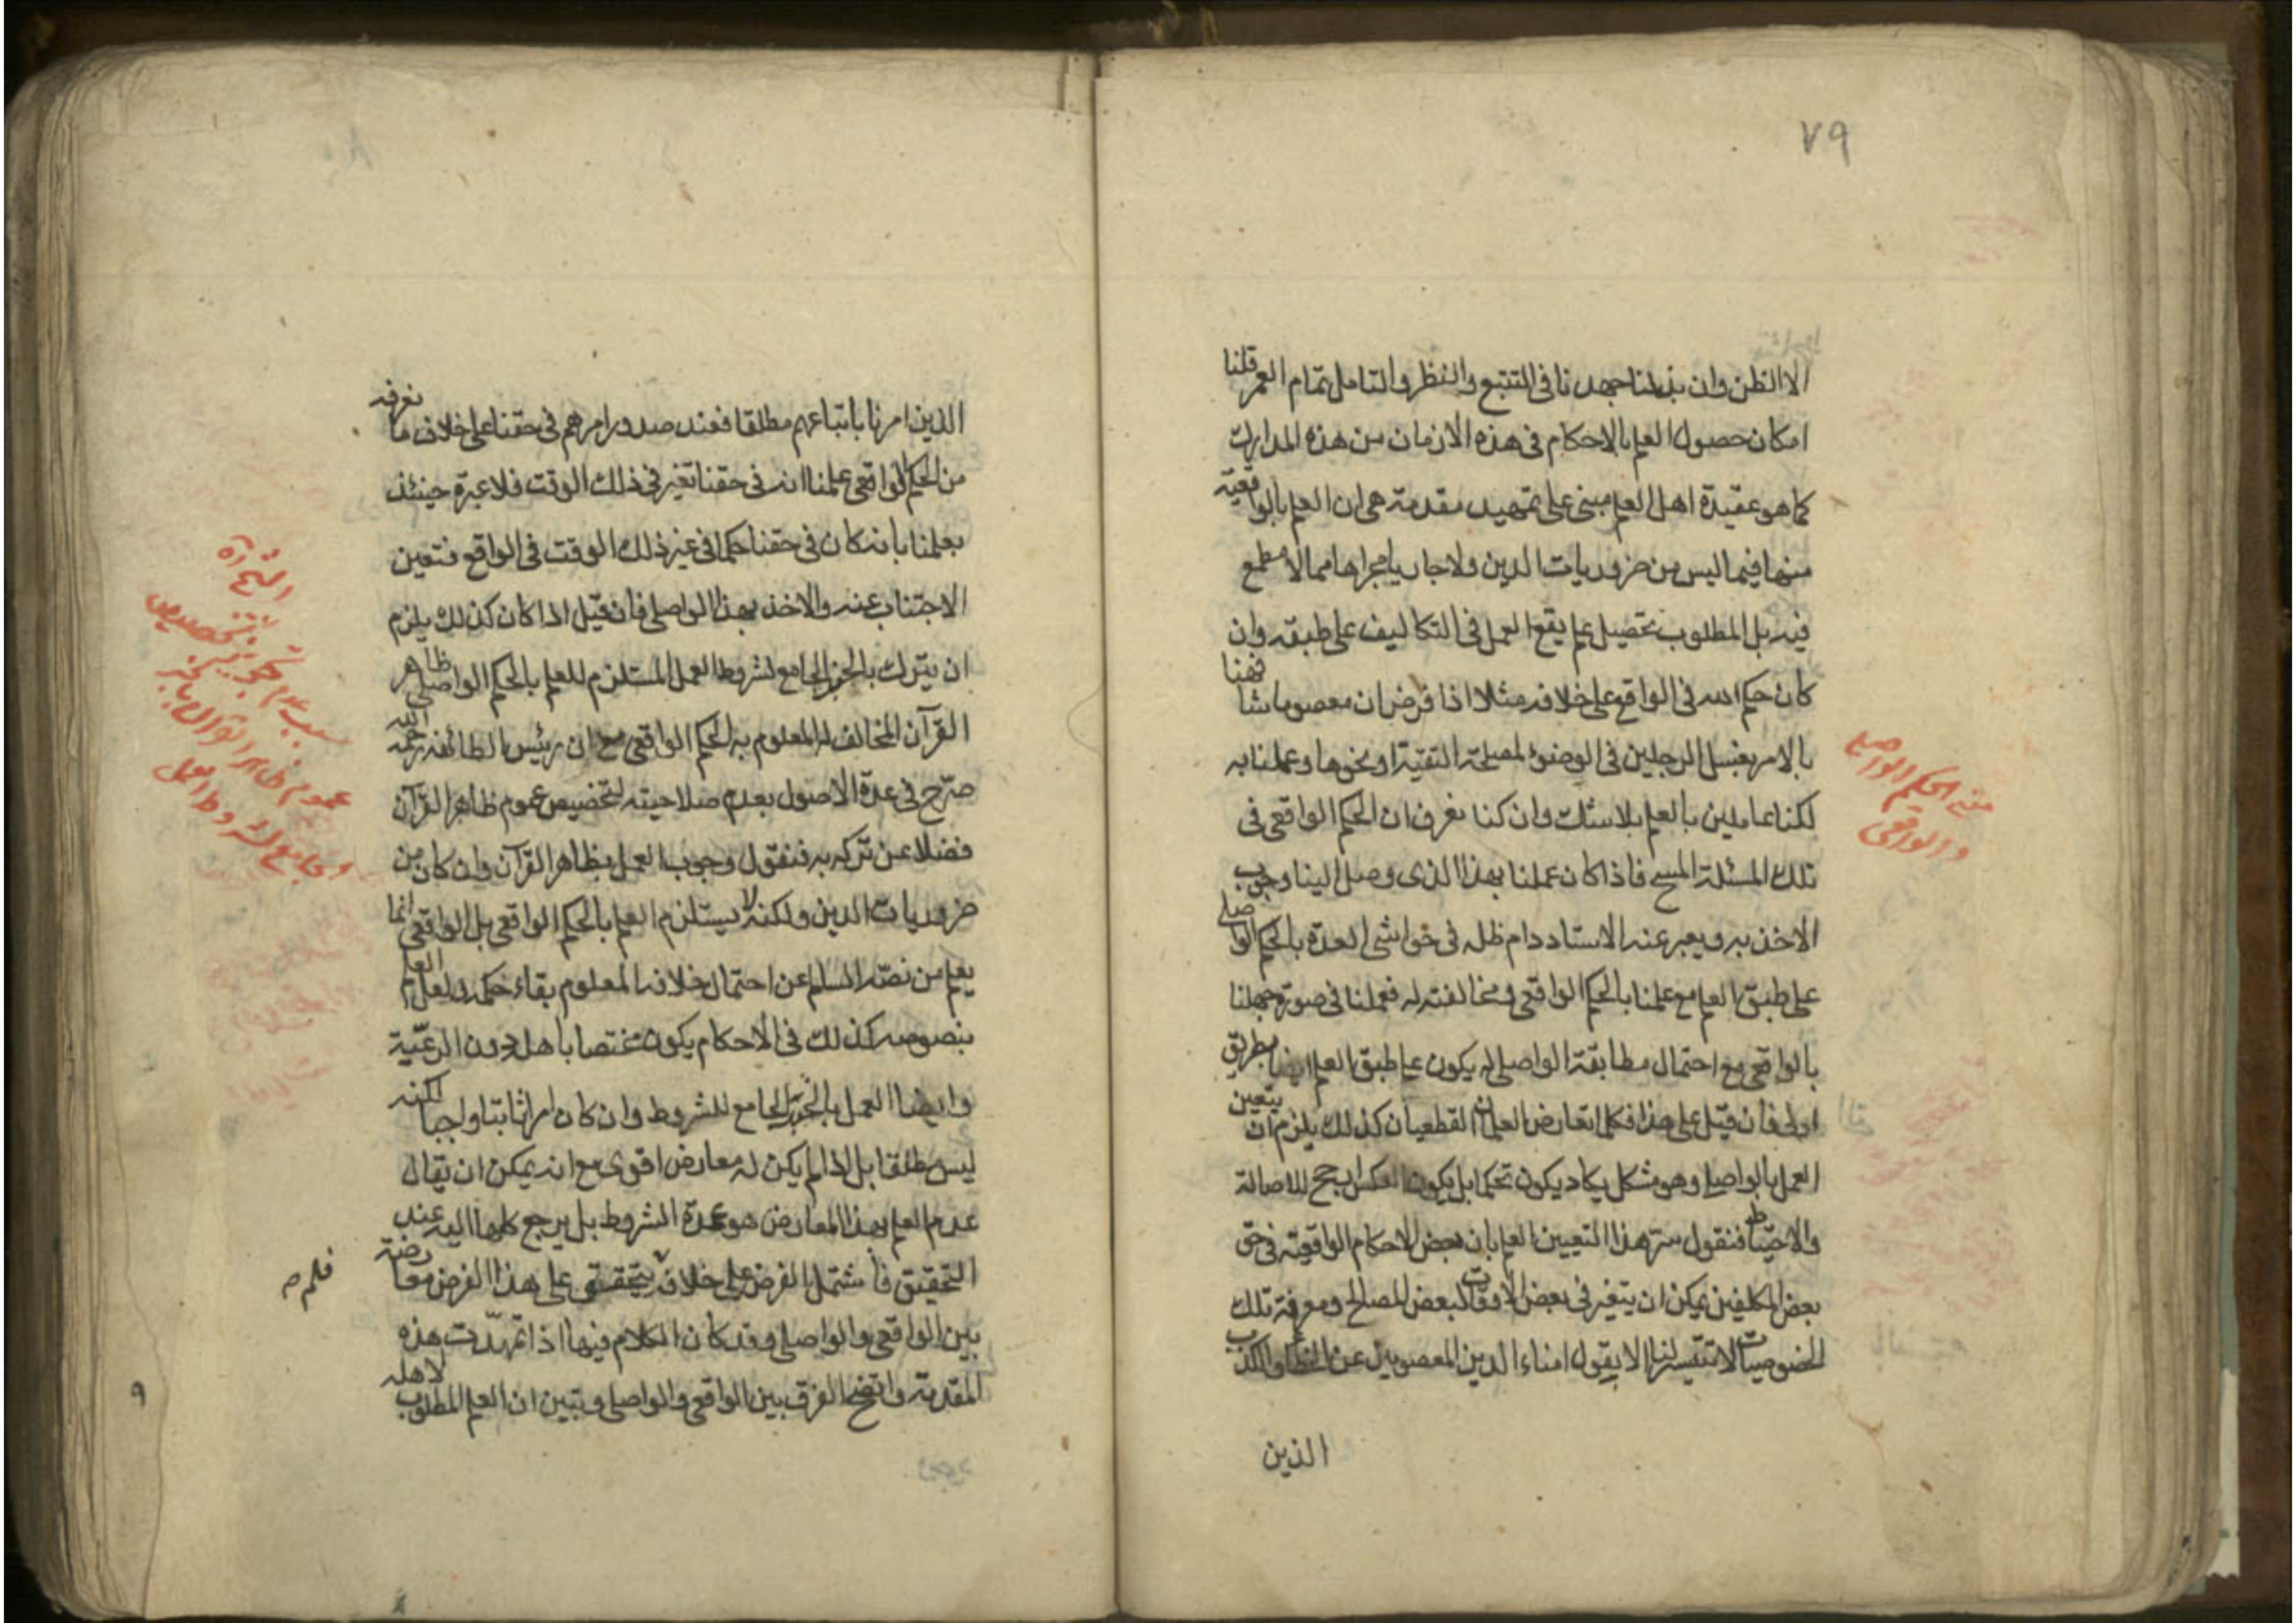 ٧٩
الا الظن وان بذلنا جهدنا فى التتبع والنظر والتامل تمام العمر قلنا
امكان حصول العلم بالاحكام فى هذه الازمان من هذه المدارك
كما هو عقيدة اهل العلم مبنى على تمهيد مقدمة هى ان العلم بالواقعية
منها فيما ليس من ضروريات الدين ولا جار يا مجراها مما لا مطمع
فيه بل المطلوب تحصيل علم يقع العمل فى التكاليف على طبقه وان
كان حكم الله فى الواقع على خلافه مثلا اذا فرض ان معصوما شافهنا
بالامر بغسل الرجلين فى الوضوء لمصلحة التقية او نحوها وعملنا به
لكنا عاملين بالعلم بلا شك وان كنا نعرف ان الحكم الواقعى فى
تلك المسئلة المسح فاذا كان عملنا بهذا الذى وصل الينا وجوب
الاخذ به ويعبر عنه الاستاد دام ظله فى حواشى العدة بالحكم الواصلى
على طبق العلم مع علمنا بالحكم الواقعى ومخالفته له فعملنا فى صورة جهلنا
بالواقعى مع احتمال مطابقة الواصلى له يكون على طبق العلم ايضا بطريق
اولى فان قيل على هذا فكلما تعارض العلمان القطعيان كذلك يلزم ان يتعين
العمل بالواصلى وهو مشكل يكاد يكون تحكما بل يكون العكس ارجح للاصالة
والاحتياط فنقول ستر هذا التعيين العلم بان بعض الاحكام الواقعية فى حق
بعض المكلفين يمكن ان يتغير فى بعض الاوقات لبعض المصالح ومعرفة تلك
الخصوصيات لا تتيسر لنا الا بقول امناء الدين المعصومين عن الخطأ والكذب
الذين
معنى الحكم الواصلى
والواقعى
الذين امرنا باتباعهم مطلقا فعند صدور امرهم فى حقنا على خلاف ما نعرفه
من الحكم الواقعى علمنا انه فى حقنا تغير فى ذلك الوقت فلا عبرة حينئذ
بعلمنا بانه كان فى حقنا حكما فى غير ذلك الوقت فى الواقع فتعين
الاجتناب عنه والاخذ بهذا الواصلى فان قيل اذا كان كذلك يلزم
ان يترك بالخبر الجامع لشروط العمل المستلزم للعلم بالحكم الواصلى ظاهر
القرآن المخالف له المعلوم به الحكم الواقعى مع ان رئيس الطائفة رحمه الله
صرّح فى عدة الاصول بعدم صلاحيته لتخصيص عموم ظاهر القرآن
فضلا عن تركه به فنقول وجوب العمل بظاهر القرآن وان كان من
ضروريات الدين ولكنه لا يستلزم العلم بالحكم الواقعى بل الواقعى انما
يعلم من نصّه السالم عن احتمال خلافه المعلوم بقاء حكمه ولعل العلم
بنصوصه كذلك فى الاحكام يكون مختصا باهله دون الرعيّة
وايضا العمل بالخبر الجامع للشروط وان كان امرا ثابتا واجبا لكنه
ليس مطلقا بل اذا لم يكن له معارض اقوى مع انه يمكن ان يقال
عدم العلم بهذا المعارض هو عمدة الشروط بل يرجع كلها اليه عند
التحقيق فاشتمل الفرض على خلافه يتحقق على هذا الفرض معارضة
بين الواقعى والواصلى وقد كان الكلام فيها اذا تمهّدت هذه
المقدمة واتضح الفرق بين الواقعى والواصلى وتبين ان العلم المطلوب لاهله
فلم
عموم ظاهر القرآن بالخبر
الجامع لشروط العمل
٩